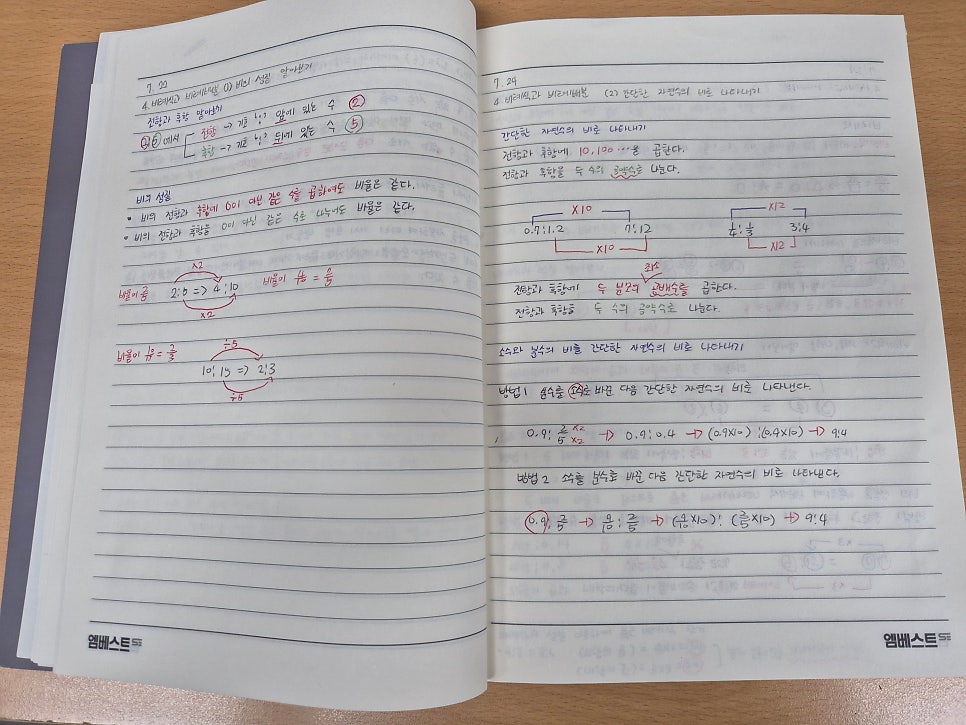 7. 22
4. 비례식과 비례배분 (1) 비의 성질 알아보기
전항과 후항 알아보기
2:5 에서
전항 → 기호 ':' 앞에 있는 수 2
후항 → 기호 ':' 뒤에 있는 수 5
비의 성질
• 비의 전항과 후항에 0이 아닌 같은 수를 곱하여도 비율은 같다.
• 비의 전항과 후항을 0이 아닌 같은 수로 나누어도 비율은 같다.
×2
비율이 2/5 2:5 => 4:10 비율이 4/10 = 2/5
×2
비율이 10/15 = 2/3
÷5
10:15 => 2:3
÷5
엠베스트SE
7. 24
4. 비례식과 비례배분 (2) 간단한 자연수의 비로 나타내기
간단한 자연수의 비로 나타내기
전항과 후항에 10, 100 …을 곱한다.
전항과 후항을 두 수의 공약수로 나눈다.
×10 ×12
0.7:1.2 7:12 1/4:1/3 3:4
×10 ×12
최소
전항과 후항에 두 분모의 공배수를 곱한다.
전항과 후항을 두 수의 공약수로 나눈다.
소수와 분수의 비를 간단한 자연수의 비로 나타내기
방법 1 분수를 소수로 바꾼 다음 간단한 자연수의 비로 나타낸다.
0.9:2/5 ×2 ×2 → 0.9:0.4 → (0.9×10):(0.4×10) → 9:4
방법 2 소수를 분수로 바꾼 다음 간단한 자연수의 비로 나타낸다.
0.9:2/5 → 9/10:2/5 → (9/10×10):(2/5×10) → 9:4
엠베스트SE